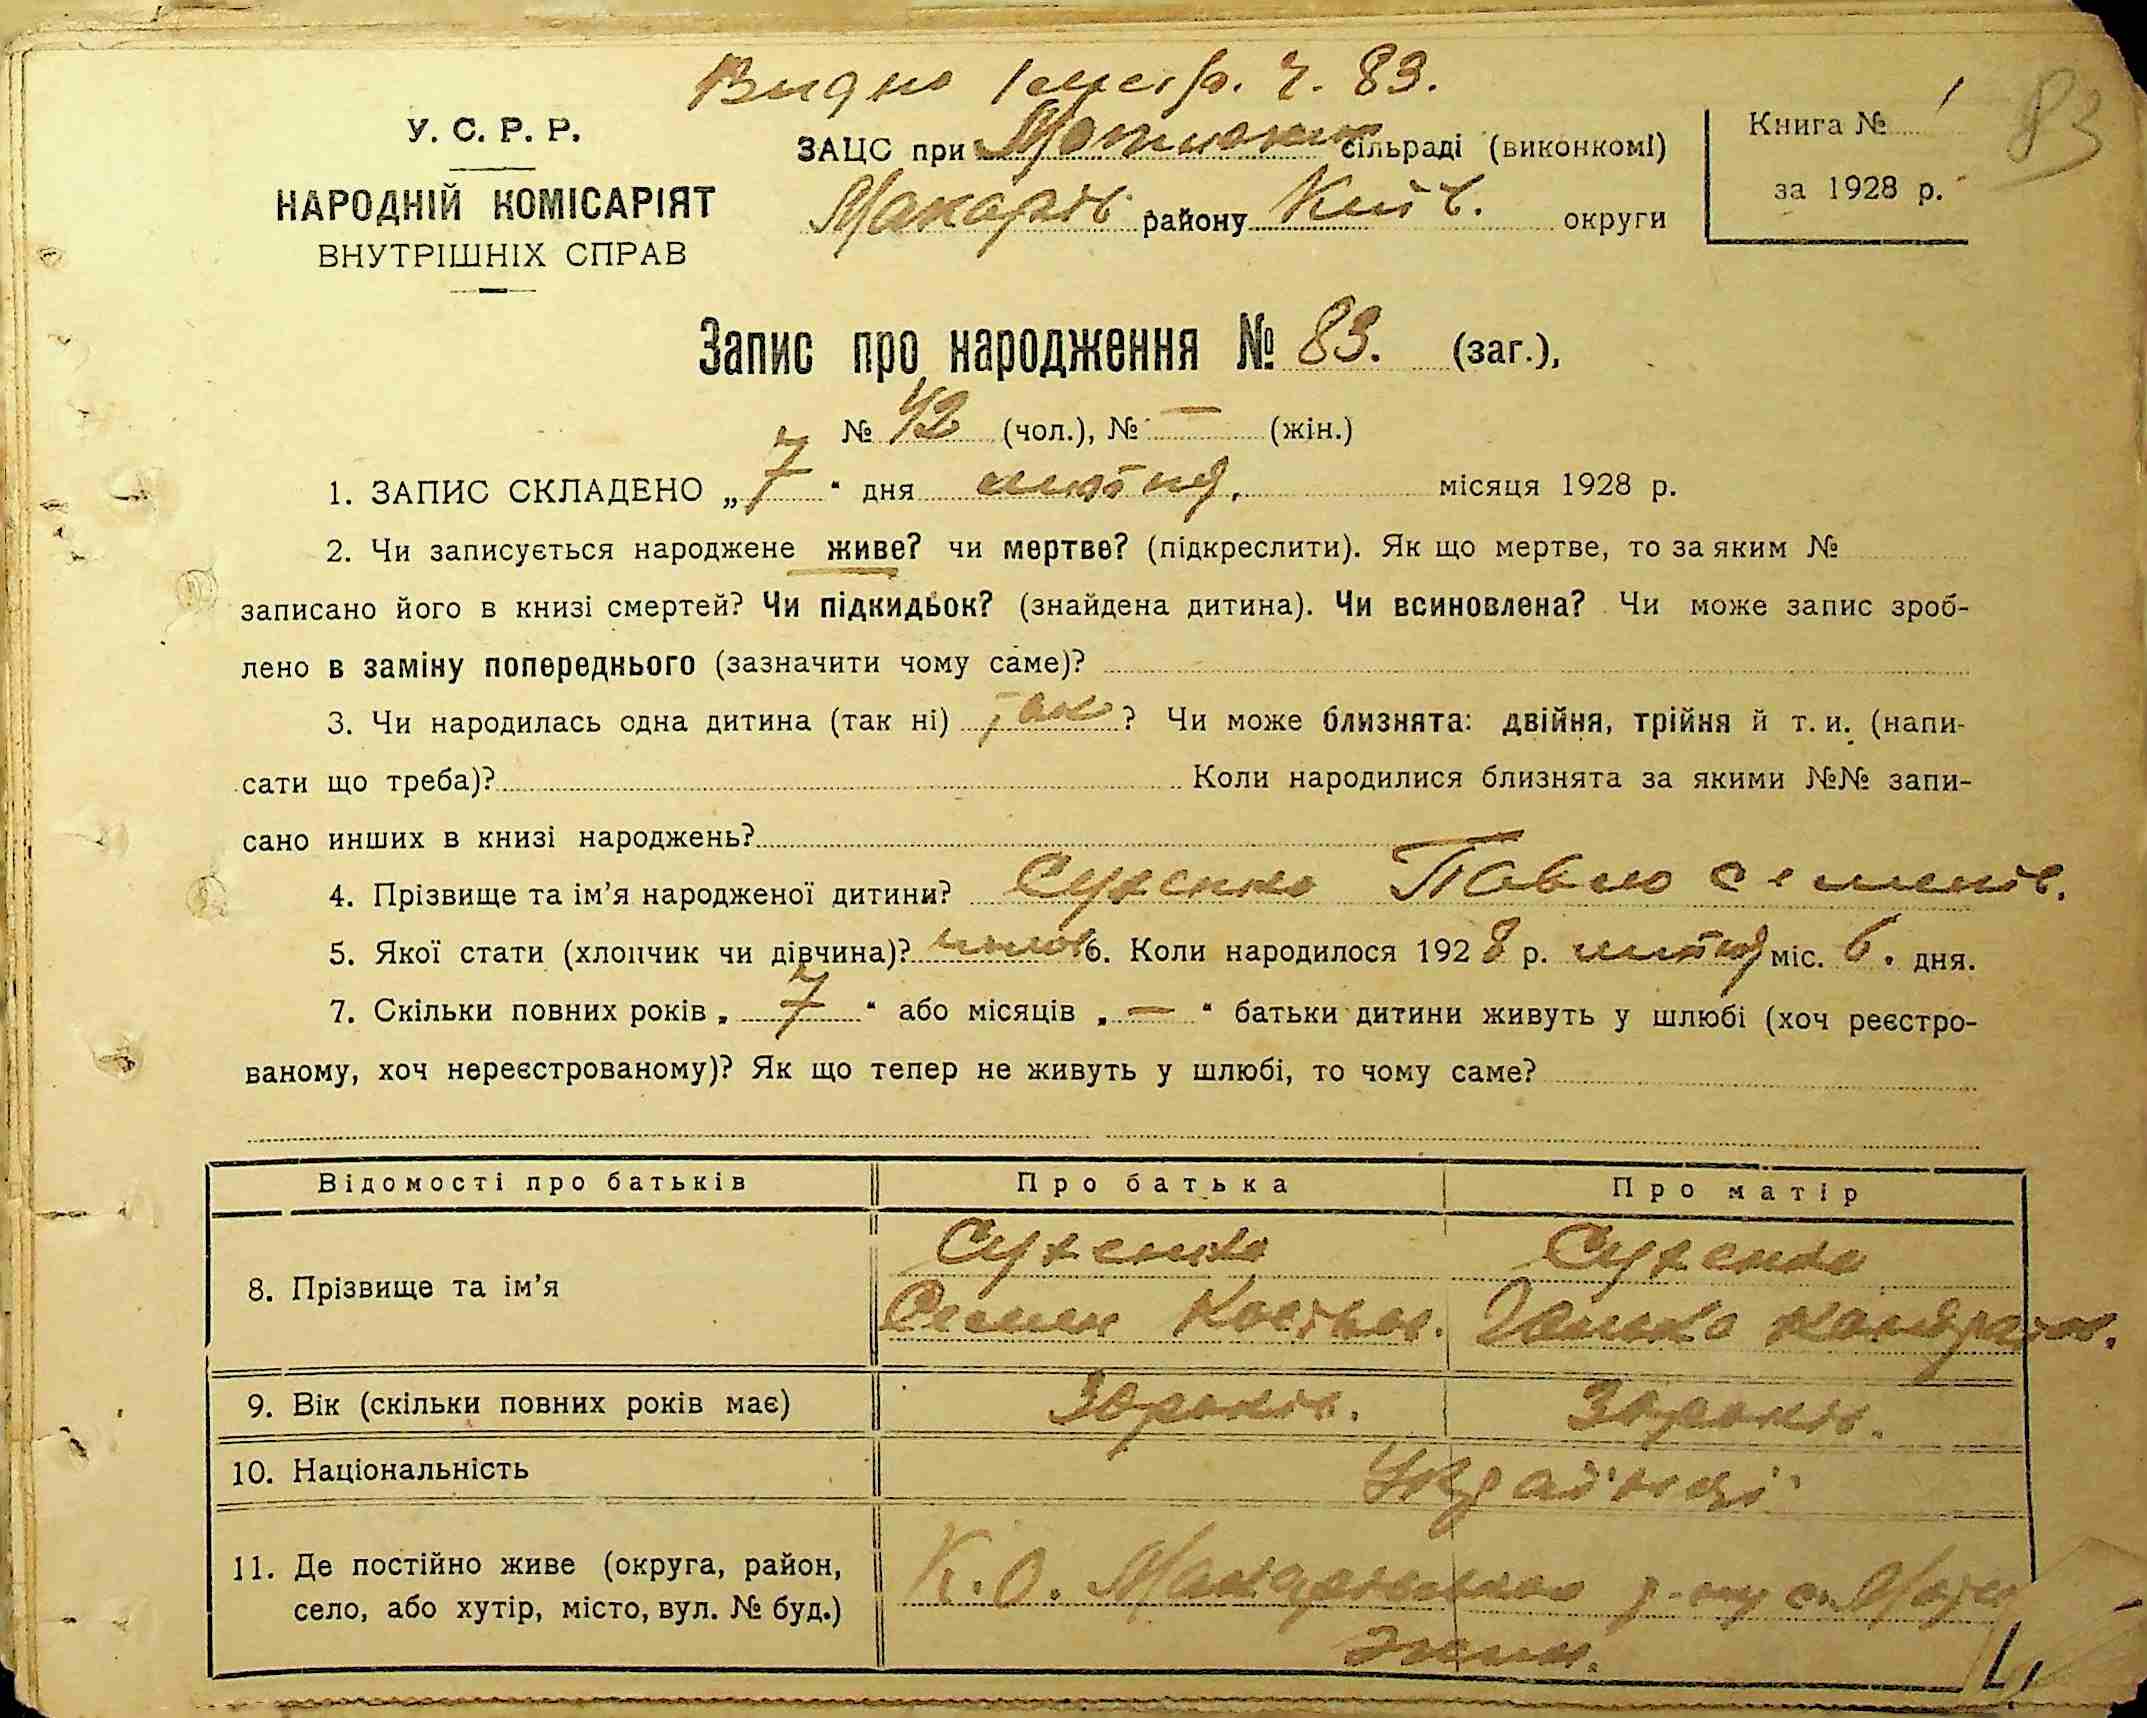 Видно 1 ч. 83.
83
У. С. Р. Р.
НАРОДНІЙ КОМІСАРІЯТ
ВНУТРІШНІХ СПРАВ
ЗАЦС при Мотижин сільраді (виконкомі)
Макарів. району Київ. округи
Книга № 1
за 1928 р.
Запис про народження № 83. (заг.),
№ 42 (чол.), № — (жін.)
1. ЗАПИС СКЛАДЕНО „7“ дня місяця 1928 р.
2. Чи записується народжене живе? чи мертве? (підкреслити). Як що мертве, то за яким №
записано його в книзі смертей? Чи підкидьок? (знайдена дитина). Чи всиновлена? Чи може запис зроб-
лено в заміну попереднього (зазначити чому саме)?
3. Чи народилась одна дитина (так ні) так? Чи може близнята: двійня, трійня й т. и. (напи-
сати що треба)? Коли народилися близнята за якими №№ запи-
сано инших в книзі народжень?
4. Прізвище та ім’я народженої дитини? Сухенко Павло Семенів.
5. Якої стати (хлопчик чи дівчина)? 6. Коли народилося 1928 р. міс. 6. дня.
7. Скільки повних років „7“ або місяців „—“ батьки дитини живуть у шлюбі (хоч реєстро-
ваному, хоч нереєстрованому)? Як що тепер не живуть у шлюбі, то чому саме?
Відомості про батьків Про батька Про матір
8. Прізвище та ім’я Сухенко Семен Костьов. Сухенко Ганька Кондратов.
9. Вік (скільки повних років має) років. років.
10. Національність Українці
11. Де постійно живе (округа, район,
село, або хутір, місто, вул. № буд.) К. О. Макарівського р-ну с. Моти
жин.